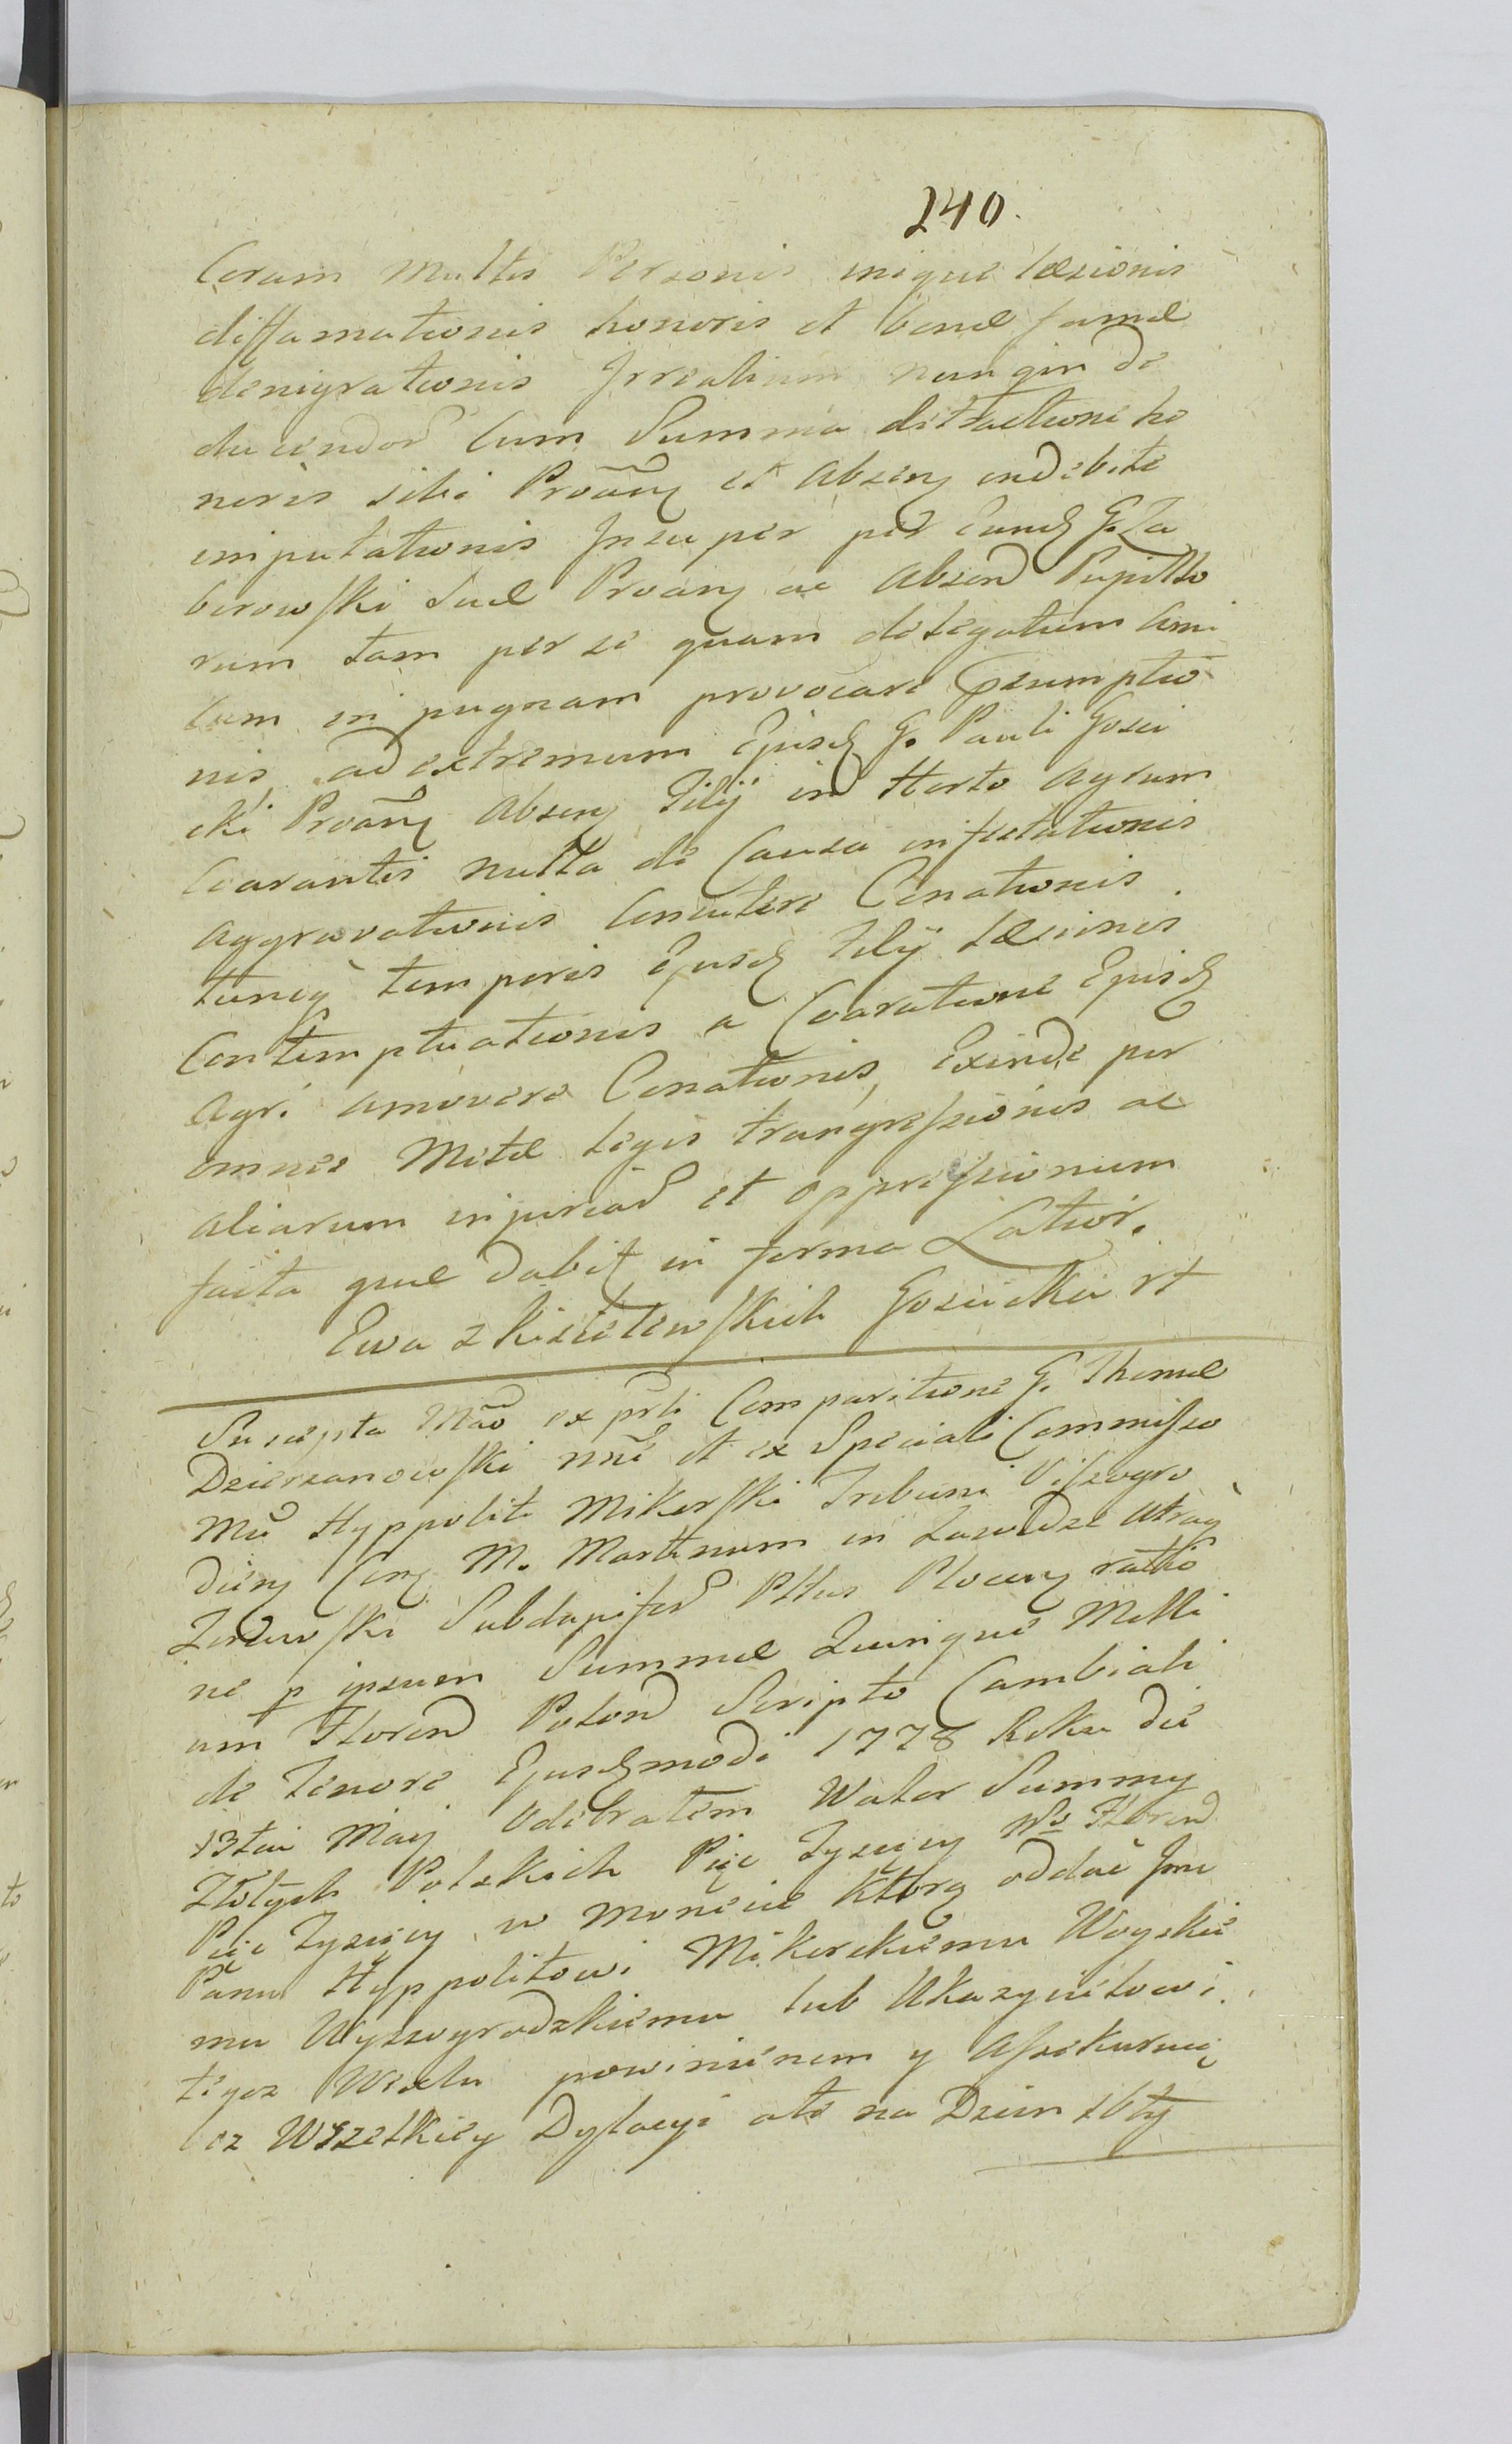 240.
Coram multis Personis inique læsionis
diffamationis honoris et bonæ famæ
denigrationis Irrealium de
ducendor Cum Summa detractione ho
noris sibi Proãnę et Absenę indebite
imputationis Insuper per Eundę G. Za
borowski Suæ Proanę ac Absend Pupillo
rum tam per se quam delegatum Ami
cum in pugnam provocare præsumptio
nis, ad extremum Ejusdę G. Pauli Gosci
cki Proãnę Absenę Filÿ in Horto Agrum
Coarantis nulla de Causa infestationis
aggravationis Concutere Conationis.
tuncq temporis Ejusdę Filÿ læsionis
Contemptuationis a Coaratione Ejusdę
Agri amovere Conationis, Exinde per
omnes Metæ legis trangressionis ac
aliarum injuriar et oppressionum
facta quæ dabit in forma Latior.
Ewa z Kisielewskich Gosiicka rt
Suscepta Mão ex prli Comparitione G. Thomæ
Dzierzanowski nnẽ et ex Speciali Commisso
Mci Hyppoliti Mikorski Tribuni Viszogro
dienę Conę M. Martinum in Zawidze utraq
Zorawski Subdapifer Pltus Plocenę ratio
ne p ipsum Summæ Quinque Milli
um Floren Polon Scripto Cambiali
de Tenore Ejusdęmodi 1778 Roku die
13tia Maij Odebrałem Walor Summy
Złotych Polskich Pięc Tysięcy No Floren
Pięc Tysięcy w monecie Ktorą oddać Jmc
Panu Hyppolitowi Mikorskiemu Woyskie
mu Wyszogrodzkiemu lub Ukazycielowi
tegoz Wexlu powinienem y Assekuruię
bez Wszelkiey Dylacyi ale na Dzien 16ty